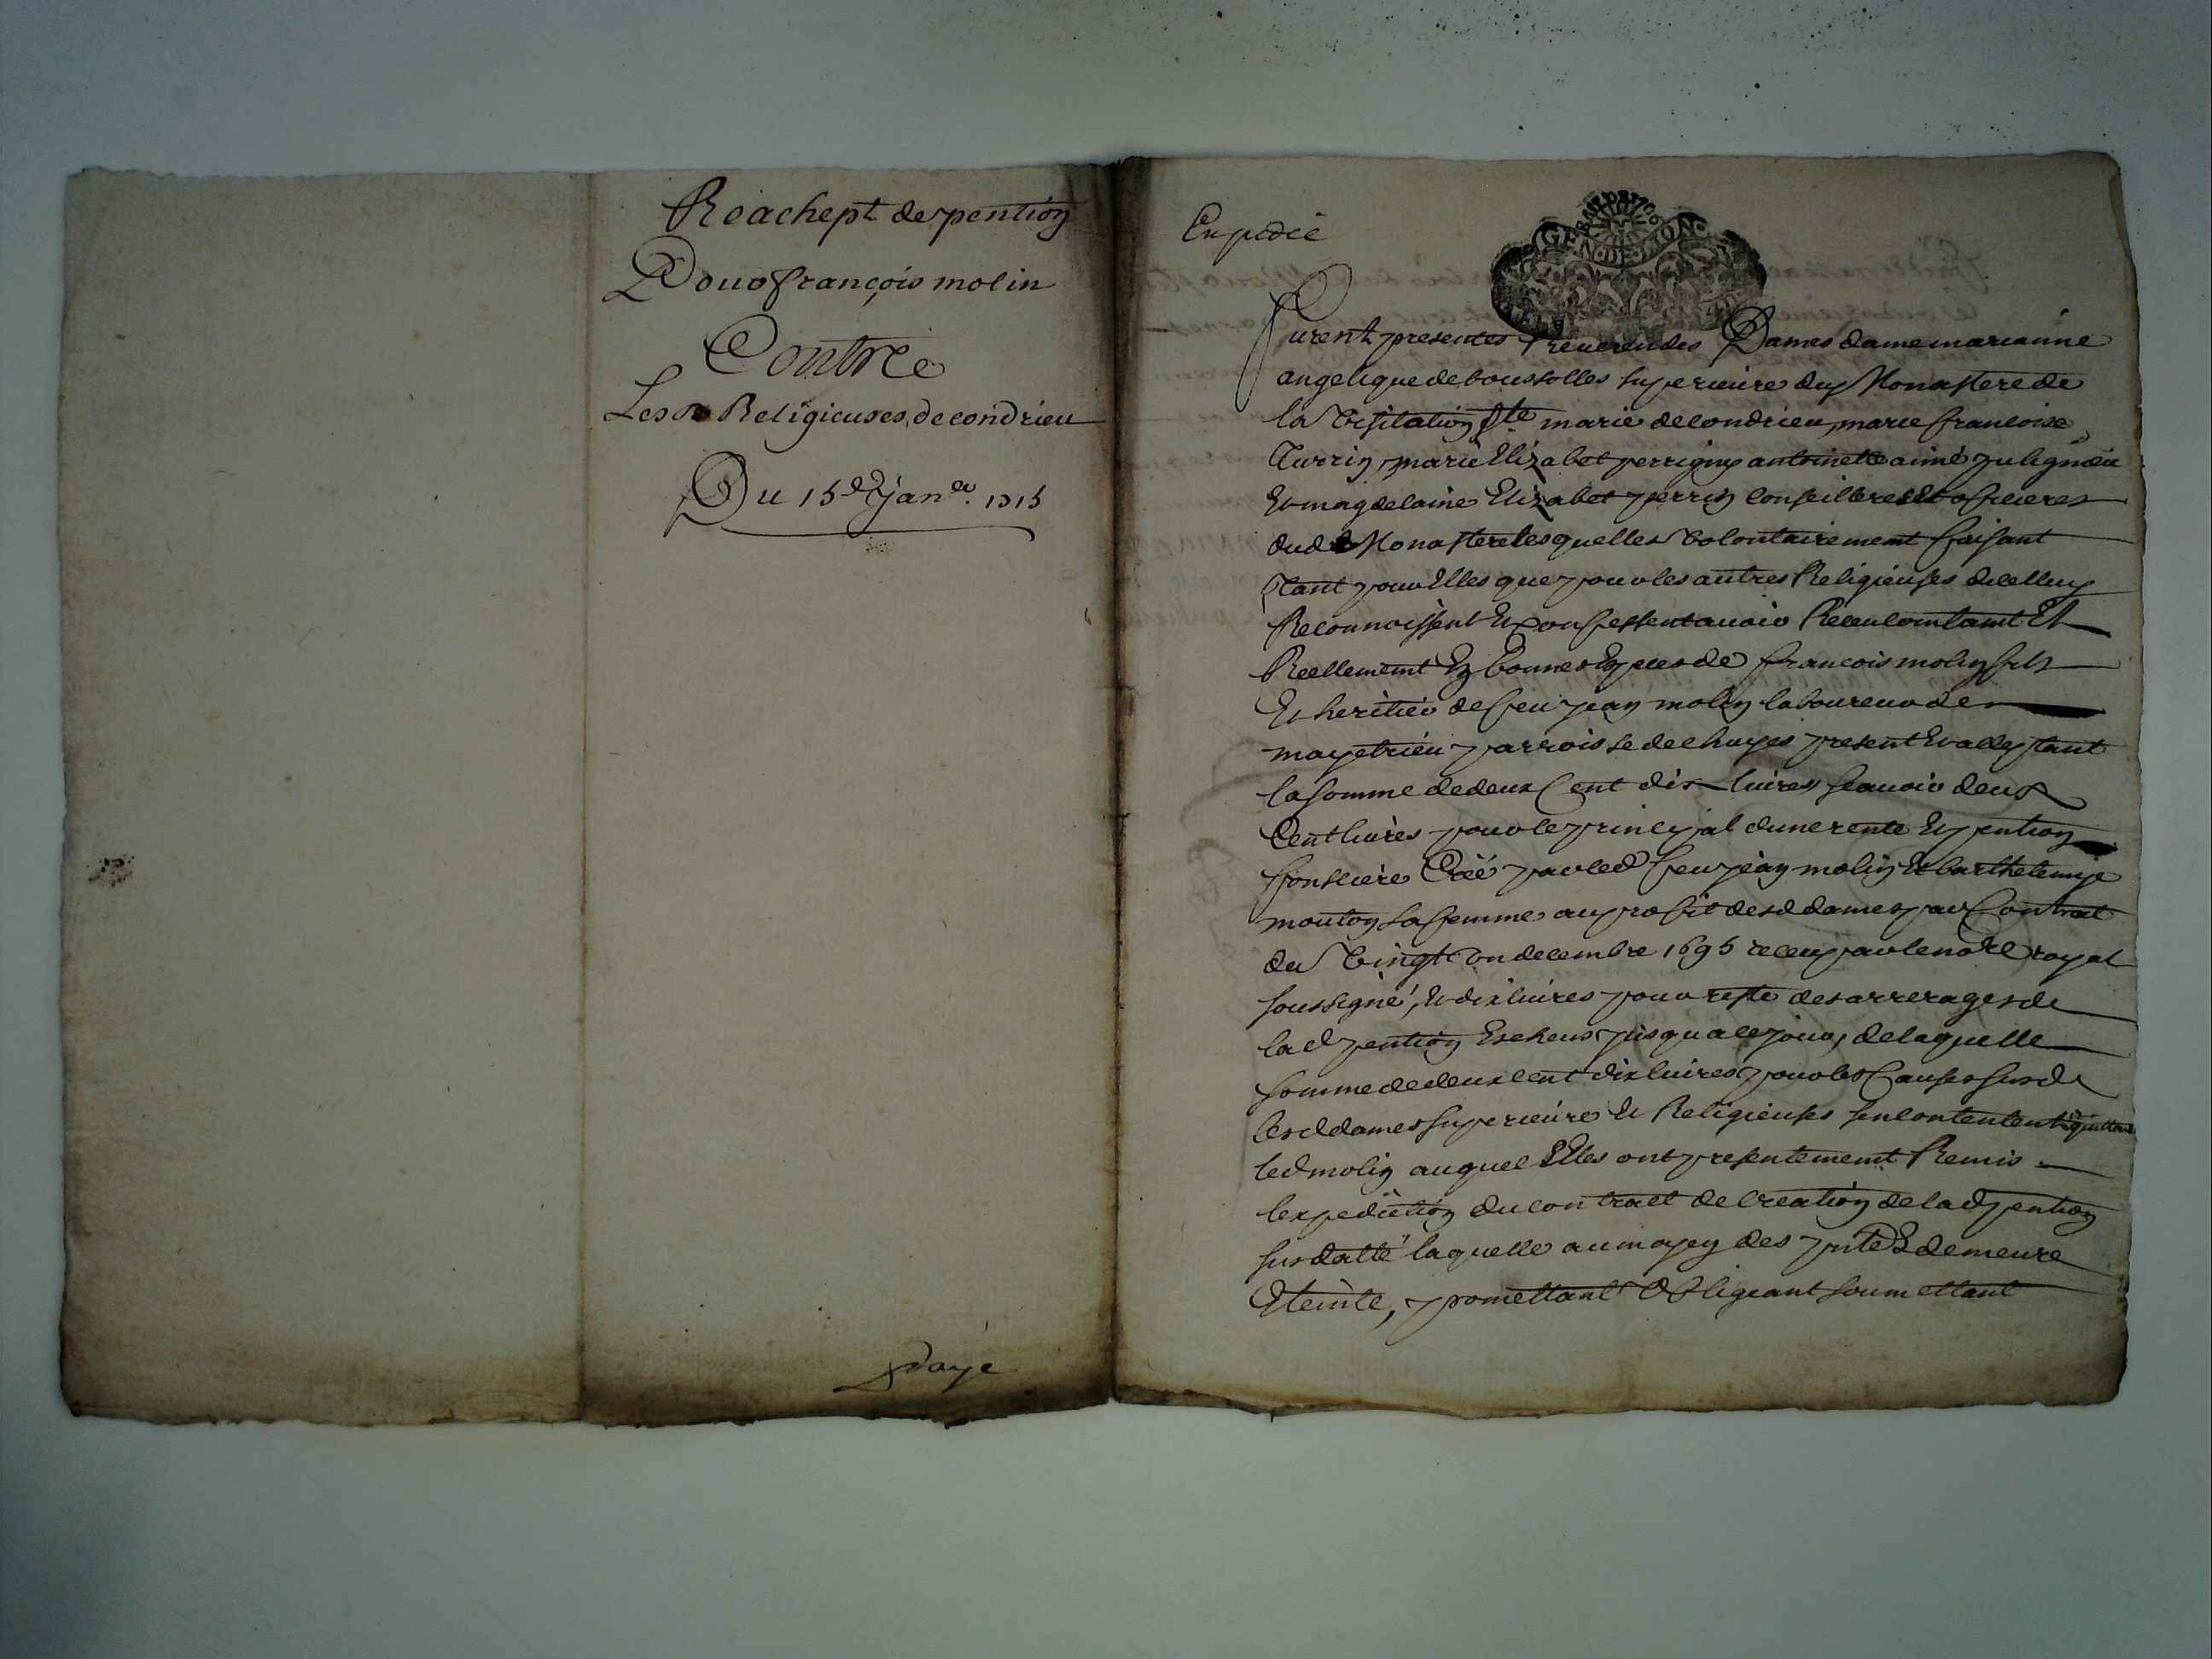 Reachept de pention
Pour françois molin
Contre
Les Religieuses de condrieu
Du 15e Janer. 1715
payé
Expedié
GEN DE LION
Furent presentes Reverendes Dames dame marianne
angelique de boussolles superieure du Monastere de
la Visitation Ste marie de condrieu, marie francoise
Turrin, marie Elizabet perrigny antoinette aimé
Et magdelaine Elizabet perrin Conseilleres Et officieres
dud Monastere lesquelles volontairement faisant
tant pour Elles que pour les autres Religieuses dicelluy
Reconnoissent Et Confessent avoir Receu contant Et
Reellement En bonnes Especes de francois molin fils
Et heritier de feu jean molin laboureur de
mayetrieu parroisse de chuyes present Et acceptant
la somme de deux Cent dix livres scavoir deux
Cent livres pour le principal dune rente Et pention
fonsciere Créé par led feu jean molin Et barthelemye
mouton sa femme au profit desd dames par Contrat
du Vingt un decembre 1695 receu par le nore royal
soussigné, Et dix livres pour reste des arrerages de
lad pention Escheus jusqua ce jour, de laquelle
somme de deux cent dix livres pour les Causes susd
lesd dames superieure Et Religieuses sen contentent Et quittent
led molin auquel Elles ont presentement Remis
lexpedition du contract de Creation de lad pention
susdatté laquelle au moyen des pntes demeure
Eteinte, promettant Obligeant soumettant